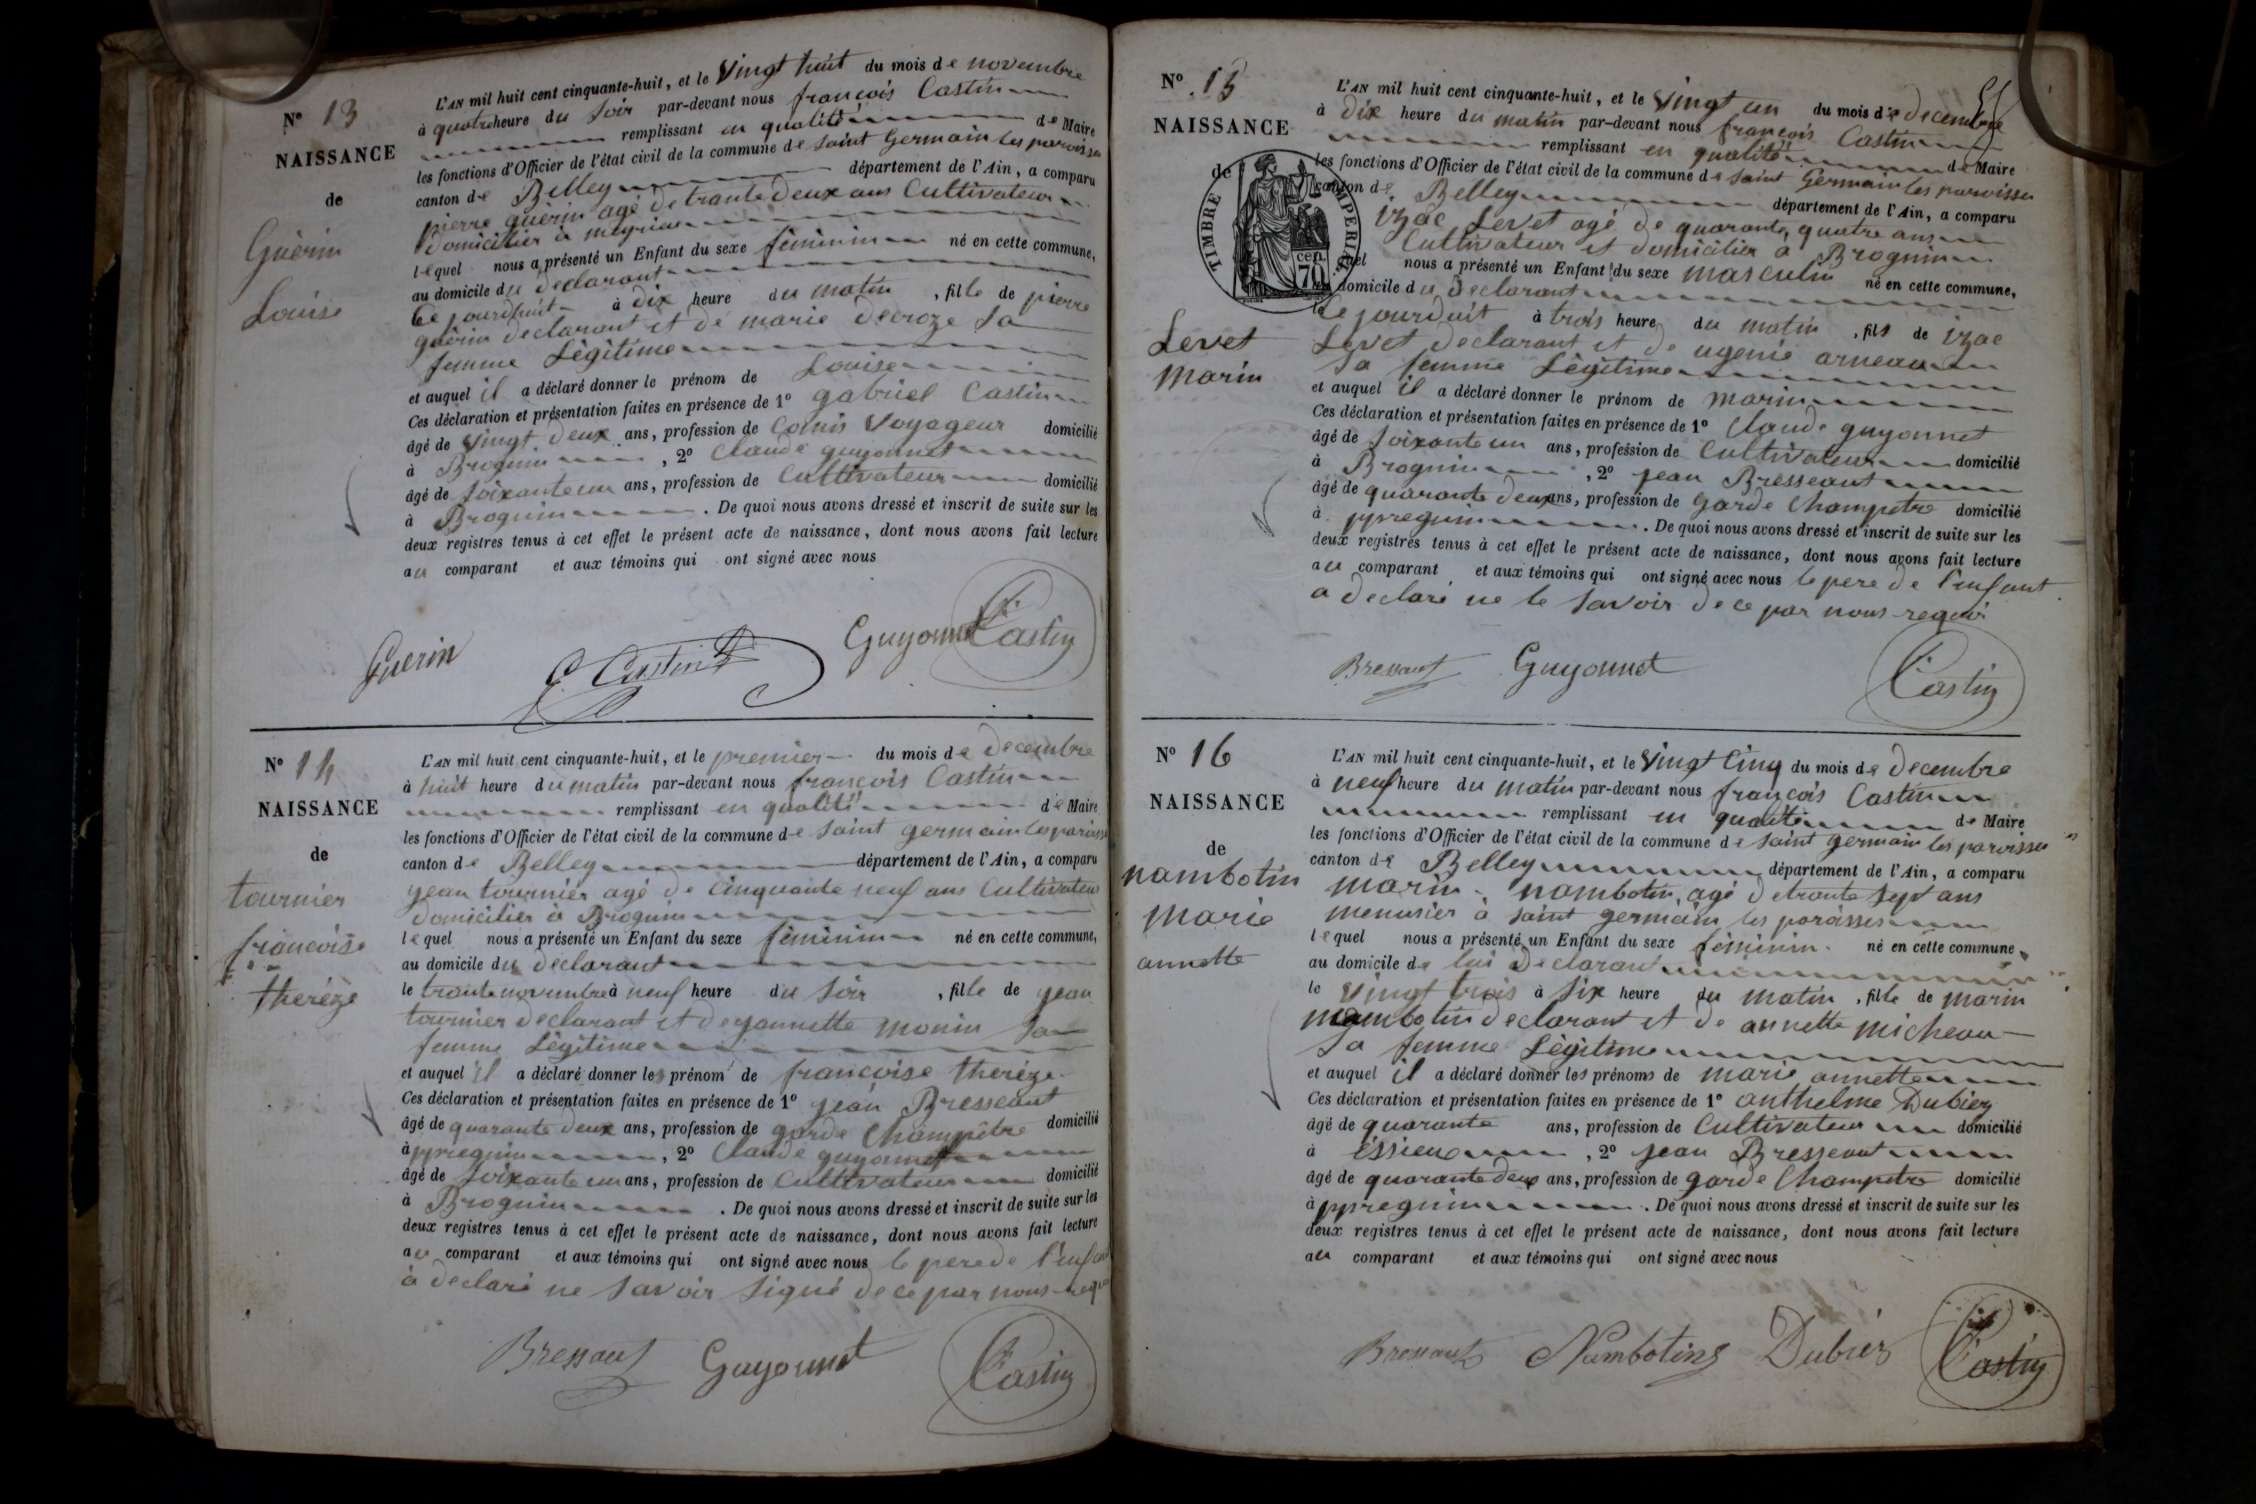 Nº 13
NAISSANCE
de
Guérin
Louise
L'AN mil huit cent cinquante-huit, et le Vingt huit du mois de novembre
à quatre heure du Soir par-devant nous françois Castin
remplissant en qualité de Maire
les fonctions d'Officier de l'état civil de la commune de saint Germain les paroisses
canton de Belley département de l'Ain, a comparu
pierre guérin agé de trante deux ans Cultivateur
domicilier à meyrieu
lequel nous a présenté un Enfant du sexe féminin né en cette commune,
au domicile du declarant
le jourd'huit à dix heure du matin, fille de pierre
guérin declarant et de marie decroze sa
femme Légitime
et auquel il a déclaré donner le prénom de Louise
Ces déclaration et présentation faites en présence de 1º gabriel Castin
âgé de vingt deux ans, profession de Comis Voyageur domicilié
à Brognin, 2º Claude guyonnet
âgé de soixante un ans, profession de Cultivateur domicilié
à Brognin. De quoi nous avons dressé et inscrit de suite sur les
deux registres tenus à cet effet le présent acte de naissance, dont nous avons fait lecture
au comparant et aux témoins qui ont signé avec nous
Guerin Castin Guyonnet Castin
Nº 14
NAISSANCE
de
tournier
francoise
therèze
L'AN mil huit cent cinquante-huit, et le premier du mois de decembre
à huit heure du matin par-devant nous françois Castin
remplissant en qualité de Maire
les fonctions d'Officier de l'état civil de la commune de saint germain les paroisses
canton de Belley département de l'Ain, a comparu
jean tournier agé de Cinquante neuf ans Cultivateur
domicilier à Brognin
lequel nous a présenté un Enfant du sexe féminin né en cette commune,
au domicile du declarant
le trante novembre à neuf heure du soir, fille de jean
tournier declarant et de jannette monin sa
femme Légitime
et auquel il a déclaré donner les prénom de francoise therèze
Ces déclaration et présentation faites en présence de 1º jean Bresseaut
âgé de quarante deux ans, profession de garde Champêtre domicilié
à ppregnin, 2º Claude guyonnet
âgé de soixante un ans, profession de Cultivateur domicilié
à Brognin. De quoi nous avons dressé et inscrit de suite sur les
deux registres tenus à cet effet le présent acte de naissance, dont nous avons fait lecture
au comparant et aux témoins qui ont signé avec nous le pere de l'enfant
à declaré ne savoir signé de ce par nous requi
Bressaut Guyonnet Castin
Nº 15
NAISSANCE
de
TIMBRE IMPERIAL
cen. 70
Levet
Marin
L'AN mil huit cent cinquante-huit, et le vingt un du mois de decembre
à dix heure du matin par-devant nous françois Castin
remplissant en qualité de Maire
les fonctions d'Officier de l'état civil de la commune de saint Germain les paroisses
canton de Belley département de l'Ain, a comparu
izac Levet agé de quarante quatre ans
Cultivateur et domicilier à Brognin
lequel nous a présenté un Enfant du sexe masculin né en cette commune,
domicile du declarant
le jourduit à trois heure du matin, fils de izac
Levet declarant et de ugenie arneau
sa femme Légitime
et auquel il a déclaré donner le prénom de marin
Ces déclaration et présentation faites en présence de 1º Claude guyonnet
âgé de soixante un ans, profession de Cultivateur domicilié
à Brognin, 2º jean Bresseaut
âgé de quarante deux ans, profession de garde Champetre domicilié
à ppregnin. De quoi nous avons dressé et inscrit de suite sur les
deux registres tenus à cet effet le présent acte de naissance, dont nous avons fait lecture
au comparant et aux témoins qui ont signé avec nous le pere de l'enfant
a declaré ne le savoir de ce par nous requi
Bressaut Guyonnet Castin
Nº 16
NAISSANCE
de
nambotin
marie
annette
L'AN mil huit cent cinquante-huit, et le vingt Cinq du mois de decembre
à neuf heure du matin par-devant nous françois Castin
remplissant en qualité de Maire
les fonctions d'Officier de l'état civil de la commune de saint germain les paroisses
canton de Belley département de l'Ain, a comparu
marin nambotin, agé de trante sept ans
menusier à saint germain les paroisses
lequel nous a présenté un Enfant du sexe féminin né en cette commune,
au domicile de lui declarant
le vingt trois à six heure du matin, fille de marin
nambotin declarant et de annette micheau
sa femme Légitime
et auquel il a déclaré donner les prénoms de marie annette
Ces déclaration et présentation faites en présence de 1º anthelme Dubiez
âgé de quarante ans, profession de Cultivateur domicilié
à éssieux, 2º jean Bresseaut
âgé de quarante deux ans, profession de garde Champetre domicilié
à ppregnin. De quoi nous avons dressé et inscrit de suite sur les
deux registres tenus à cet effet le présent acte de naissance, dont nous avons fait lecture
au comparant et aux témoins qui ont signé avec nous
Bressaut Nambotin Dubiez Castin